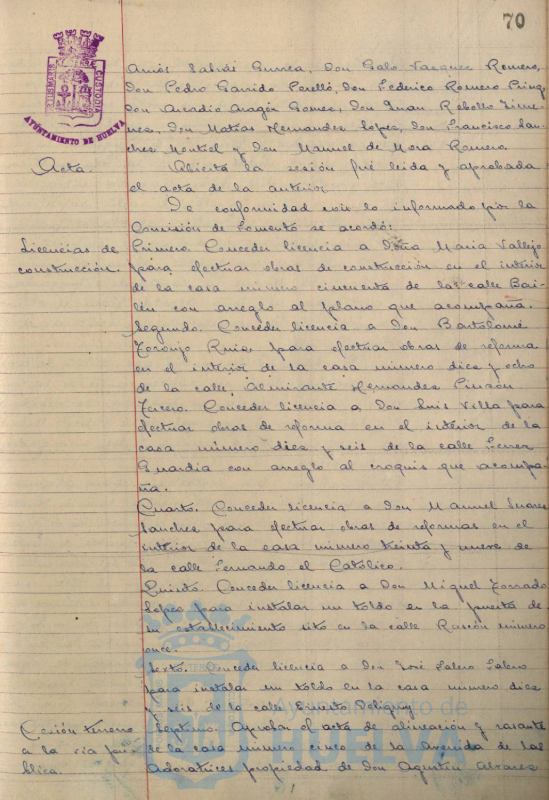 70
AYUNTAMIENTO DE HUELVA
Amós Sabrás Gurrea, Don Galo Vazquez Romero,
Don Pedro Garrido Perelló, Don Federico Romero
Don Arcadio Aragón Gomez, Don Juan Rebollo Jime-
nez, Don Matías Hernandez Lopez, Don Francisco San-
chez Montiel y Don Manuel de Mora Romero.
Acta.
Abierta la sesión fué leida y aprobada
el acta de la anterior.
De conformidad con lo informado por la
Comisión de Fomento se acordó:
Licencias de
construcción.
Primero. Conceder licencia a Doña Maria Vallejo
para efectuar obras de construcción en el interior
de la casa número cincuenta de la calle Bai-
lén con arreglo al plano que acompaña.
Segundo. Conceder licencia a Don Bartolomé
Toronjo Ruiz para efectuar obras de reforma
en el interior de la casa número diez y ocho
de la calle Almirante Hernandez Pinzón
Tercero. Conceder licencia a Don Luis Villa para
efectuar obras de reforma en el interior de la
casa número diez y seis de la calle Ferrer
Guardia con arreglo al croquis que acompa-
ña.
Cuarto. Conceder licencia a Don Manuel Suarez
Sanchez para efectuar obras de reformas en el
interior de la casa número treinta y nueve de
la calle Fernando el Católico.
Quinto. Conceder licencia a Don Miguel Torrado
Lopez para instalar un toldo en la puerta de
su establecimiento sito en la calle Rascón número
once.
Sexto. Conceder licencia a Don José Salero Salero
para instalar un toldo en la casa número diez
y seis de la calle Ernesto Deligny.
Cesión terreno
a la via pú-
blica.
Septimo. Aprobar el acta de alineación y rasante
de la casa número cinco de la Avenida de las
Adoratrices propiedad de Don Agustin Alvarez
Ayuntamiento de
HUELVA